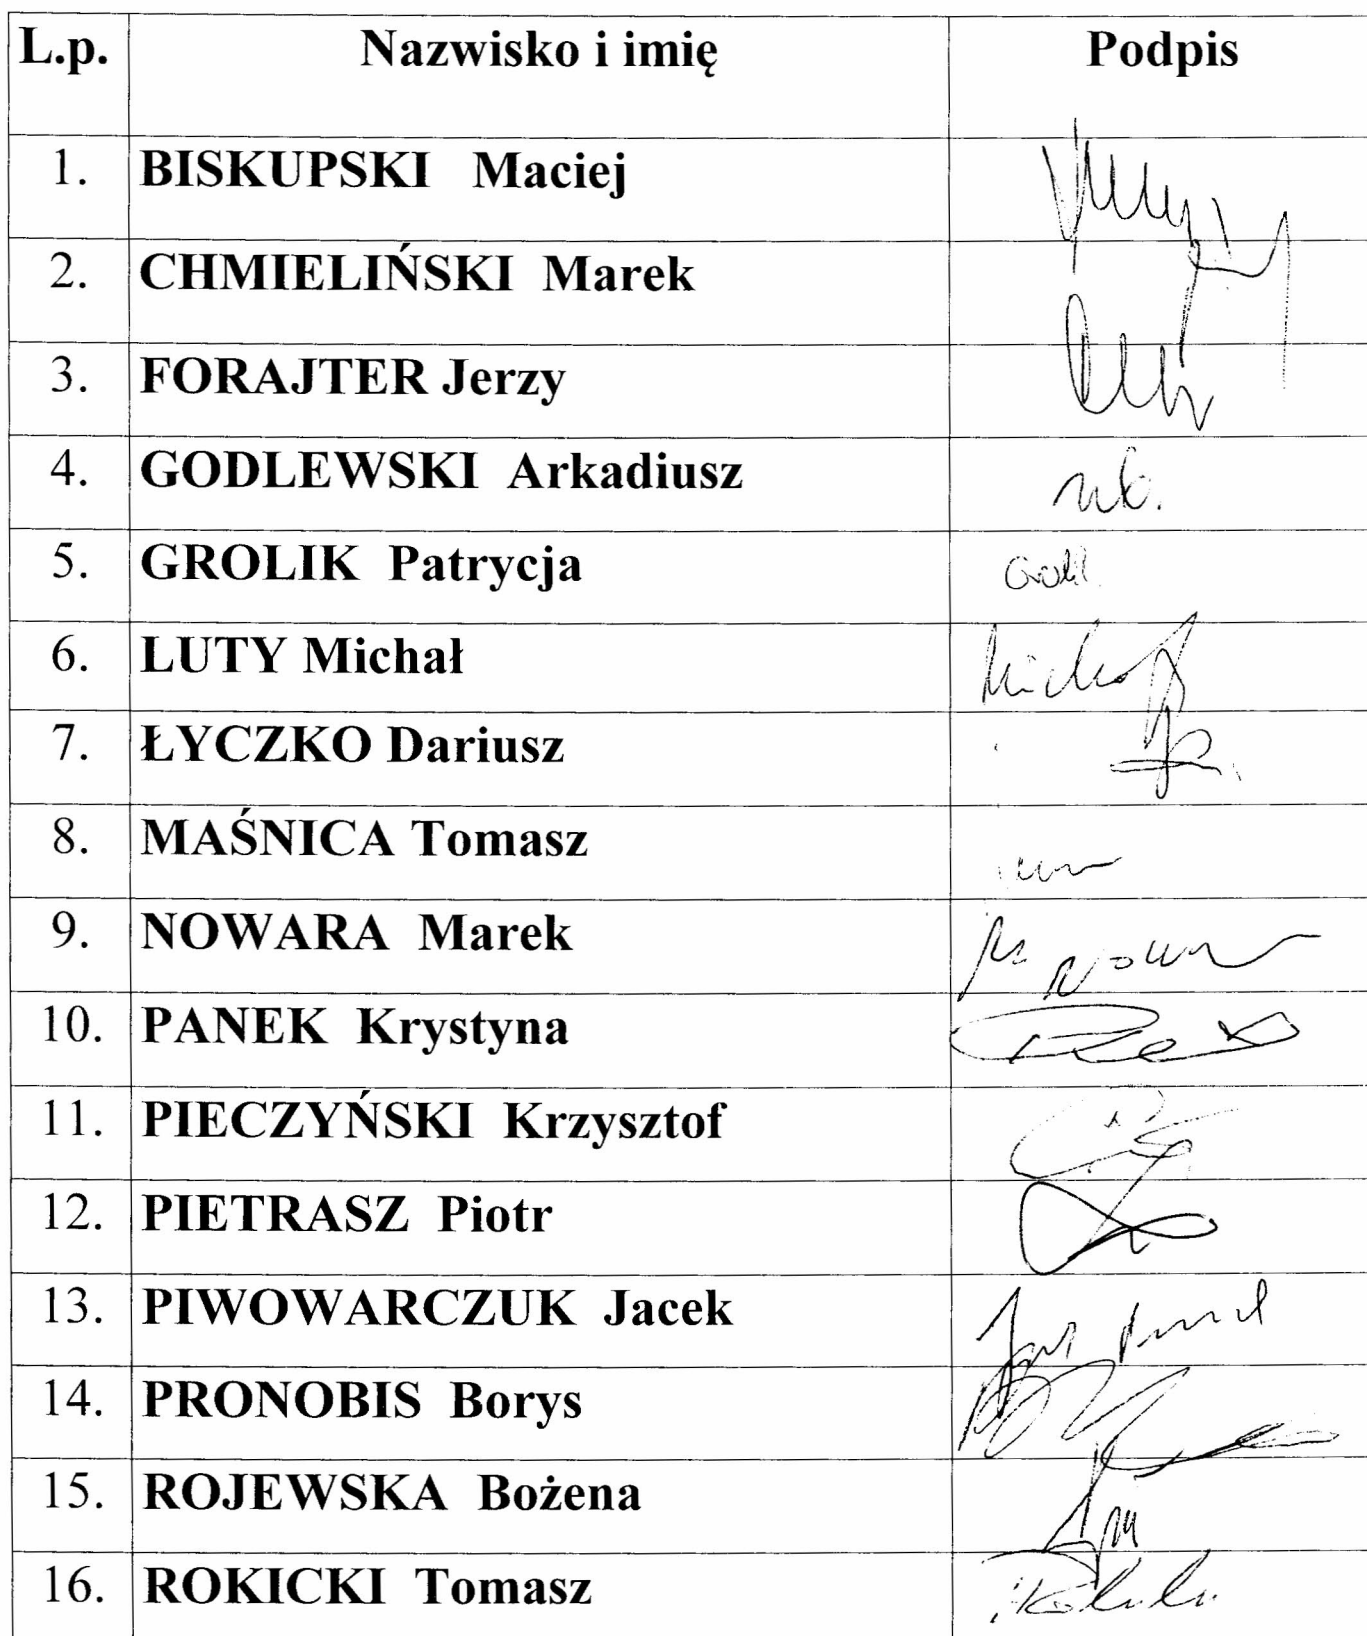 L.p. Nazwisko i imię Podpis
1. BISKUPSKI Maciej
2. CHMIELIŃSKI Marek
3. FORAJTER Jerzy
4. GODLEWSKI Arkadiusz nb.
5. GROLIK Patrycja
6. LUTY Michał
7. ŁYCZKO Dariusz
8. MAŚNICA Tomasz
9. NOWARA Marek
10. PANEK Krystyna
11. PIECZYŃSKI Krzysztof
12. PIETRASZ Piotr
13. PIWOWARCZUK Jacek
14. PRONOBIS Borys
15. ROJEWSKA Bożena
16. ROKICKI Tomasz